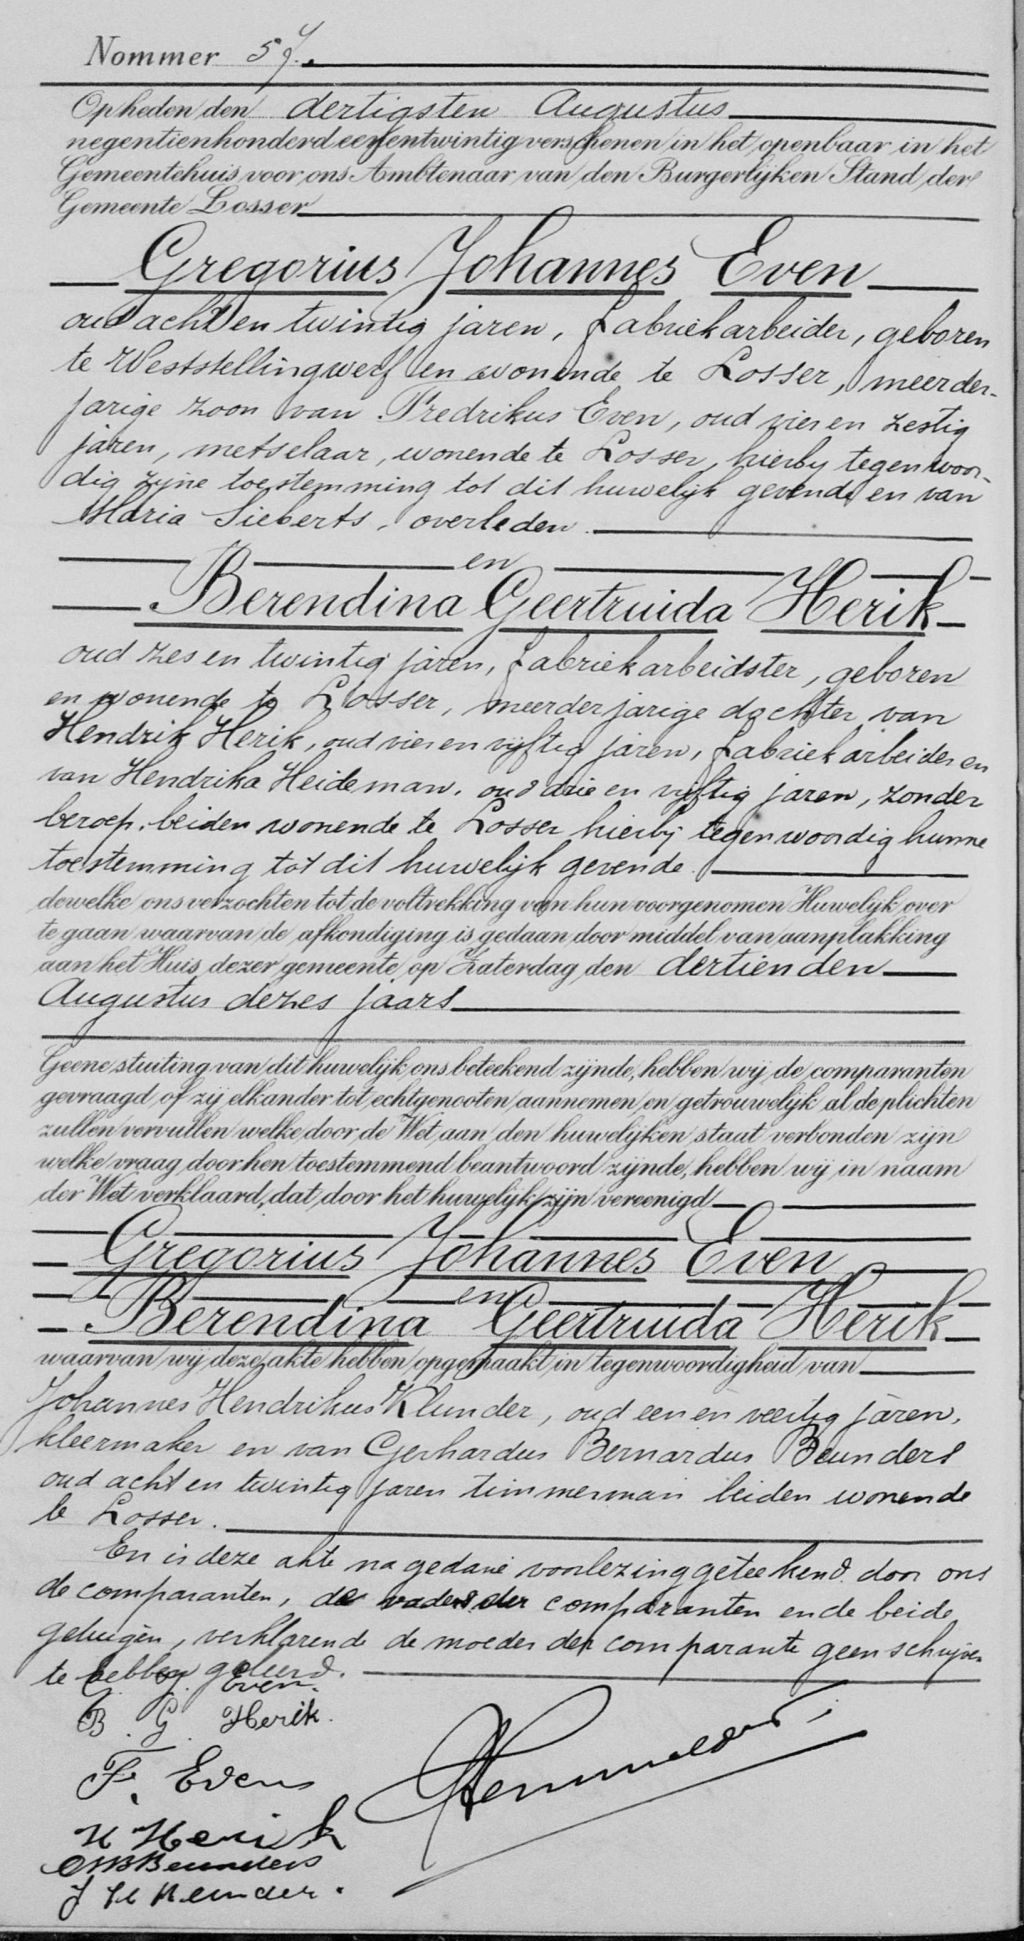 Nommer 57.
Op heden den dertigsten Augustus
negentienhonderd eenentwintig verschenen in het openbaar in het
Gemeentehuis voor ons Ambtenaar van den Burgerlijken Stand der
Gemeente Losser
Gregorius Johannes Even
oud acht en twintig jaren, fabriekarbeider, geboren
te Weststellingwerf en wonende te Losser, meerder-
jarige zoon van Fredrikus Even, oud vier en zestig
jaren, metselaar, wonende te Losser, hierbij tegenwoor-
dig zijne toestemming tot dit huwelijk gevende en van
Maria Sieberts, overleden.
en
Berendina Geertruida Herik
oud zes en twintig jaren, fabriekarbeidster, geboren
en wonende te Losser, meerderjarige dochter van
Hendrik Herik, oud vier en vijftig jaren, fabriekarbeider en
van Hendrika Heideman, oud drie en vijftig jaren, zonder
beroep, beiden wonende te Losser hierbij tegenwoordig hunne
toestemming tot dit huwelijk gevende.
dewelke ons verzochten tot de voltrekking van hun voorgenomen Huwelijk over
te gaan waarvan de afkondiging is gedaan door middel van aanplakking
aan het Huis dezer gemeente op Zaterdag den dertienden
Augustus dezes jaars
Geene stuiting van dit huwelijk ons beteekend zijnde, hebben wij de comparanten
gevraagd of zij elkander tot echtgenooten aannemen en getrouwelijk al de plichten
zullen vervullen welke door de Wet aan den huwelijken staat verbonden zijn
welke vraag door hen toestemmend beantwoord zijnde, hebben wij in naam
der Wet verklaard, dat door het huwelijk zijn vereenigd
Gregorius Johannes Even
en
Berendina Geertruida Herik
waarvan wij deze akte hebben opgemaakt in tegenwoordigheid van
Johannes Hendrikus Klunder, oud een en veertig jaren,
kleermaker en van Gerhardus Bernardus Beunders
oud acht en twintig jaren timmerman beiden wonende
te Losser.
En is deze akte na gedane voorlezing geteekend door ons
de comparanten, de vaders der comparanten en de beide
getuigen, verklarende de moeder der comparante geen schrijven
te hebben geleerd.
G. J. Even.
B. G. Herik.
F. Even
H Herik
GBBeunders
J H Klunder.